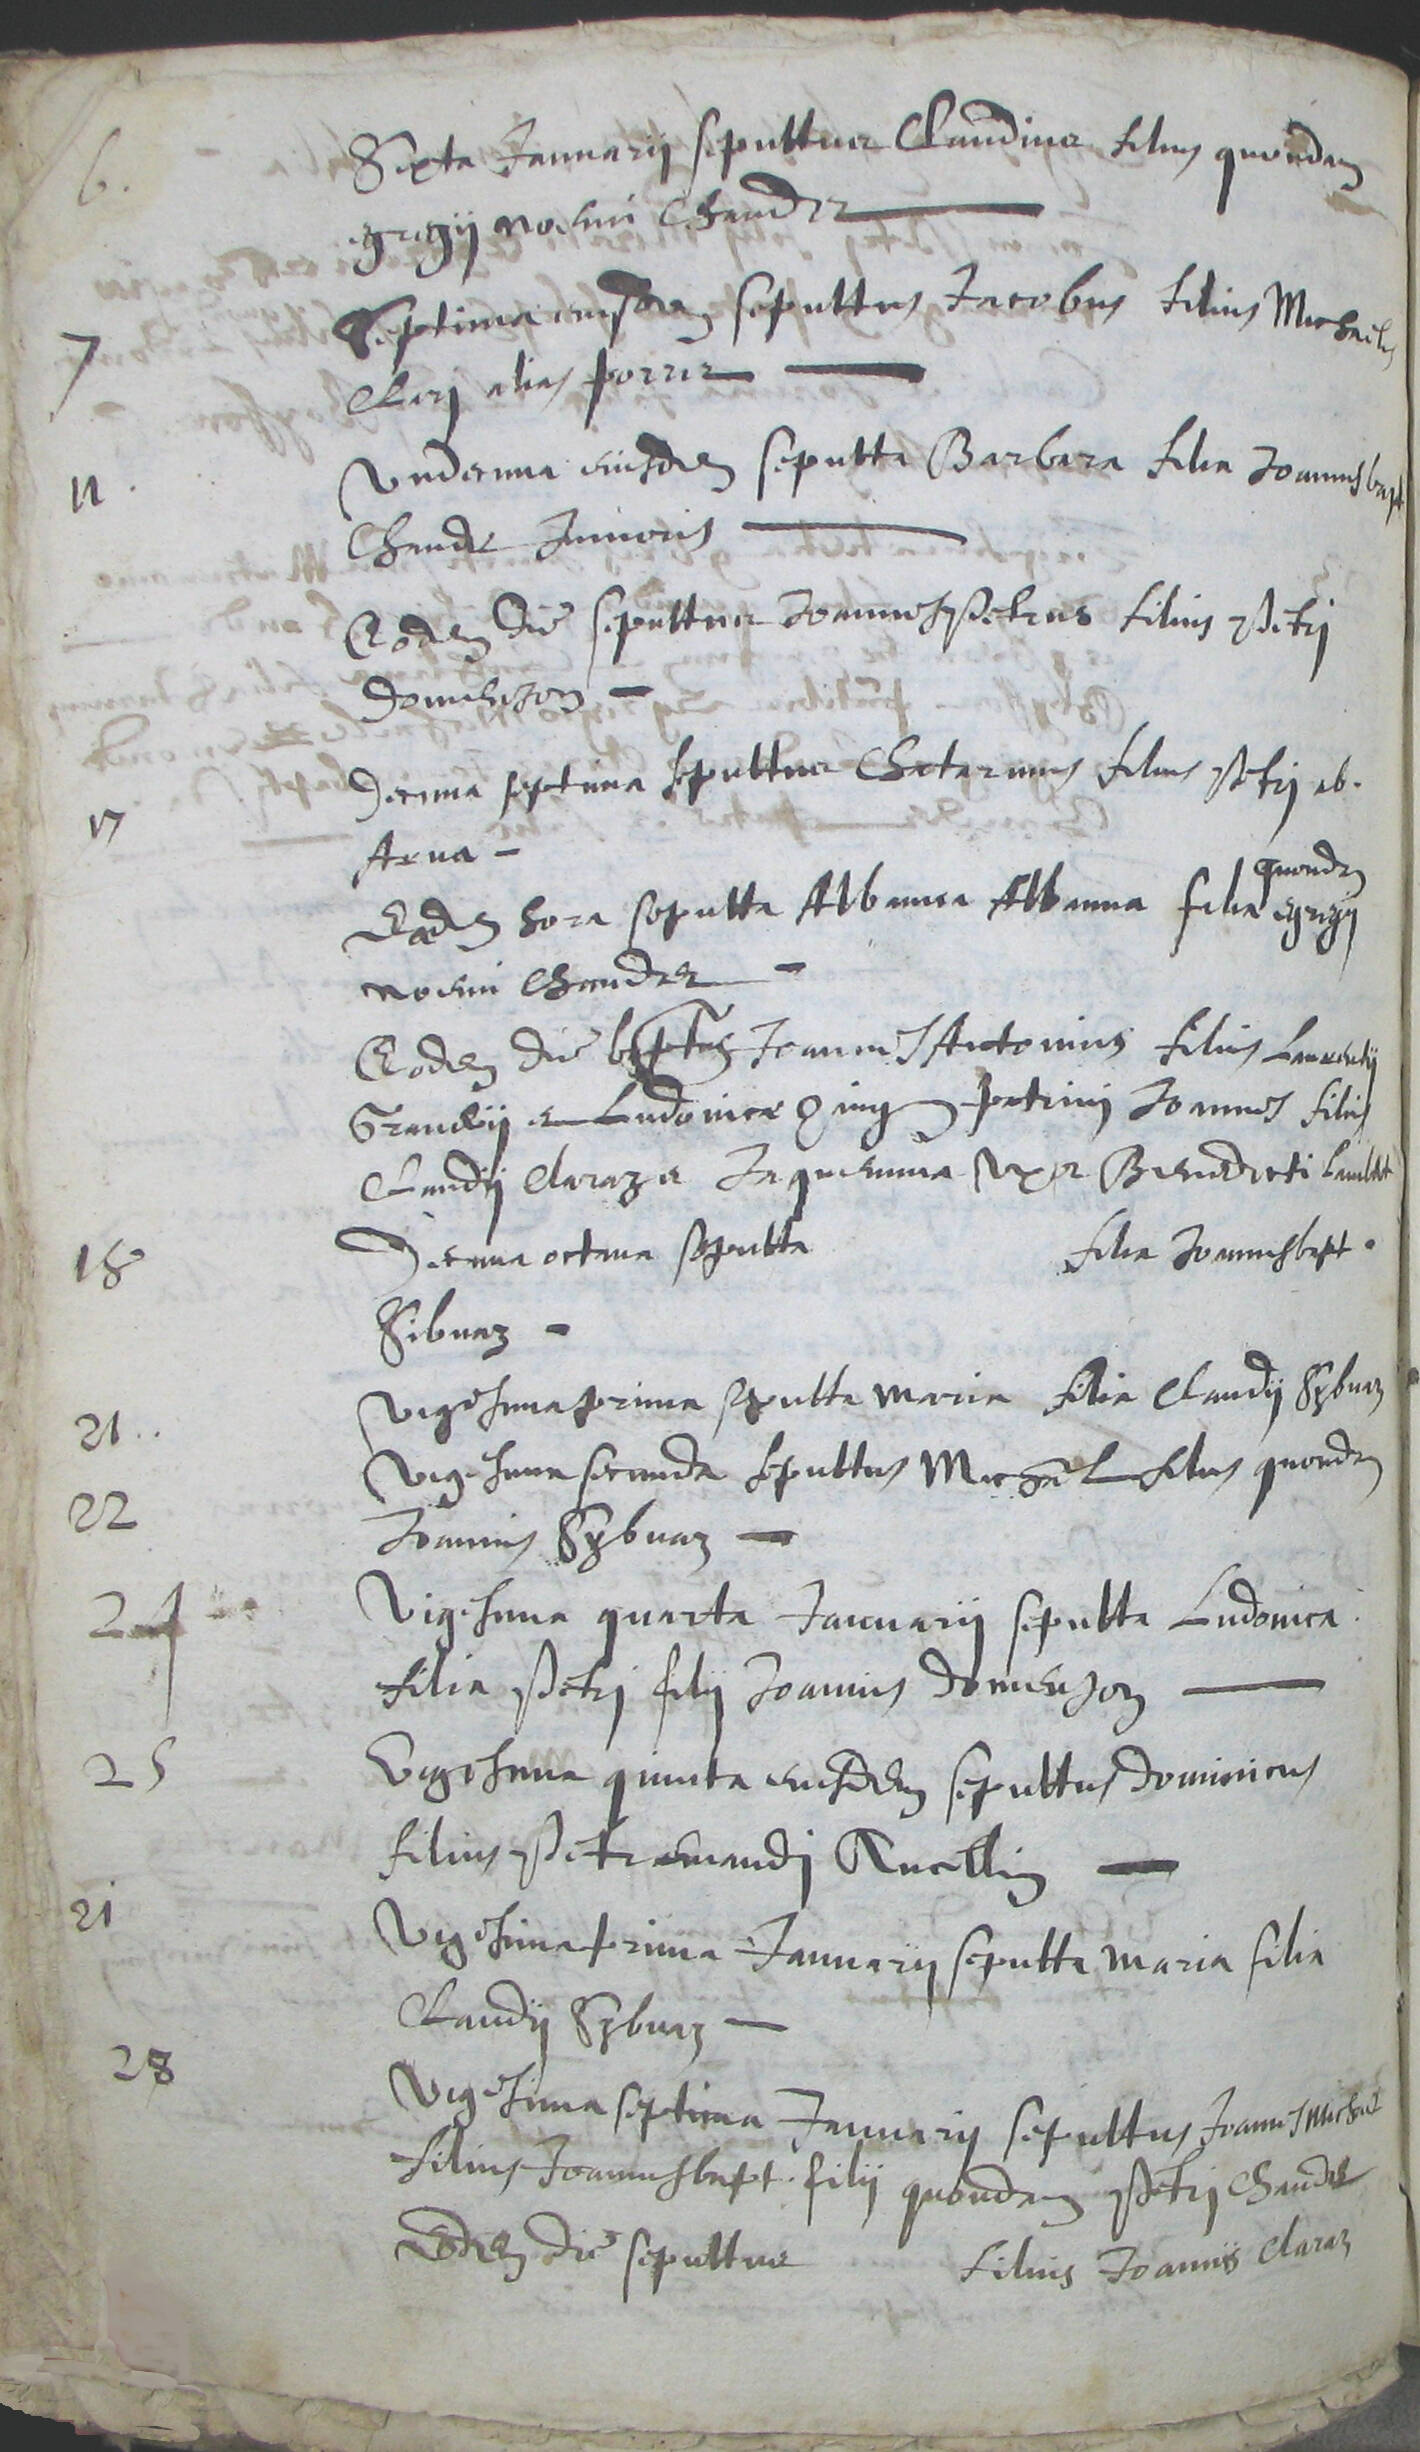 6.
Sixta Januarij sepultus Claudius filius quondam
egregij Noelini Chander
7
Septima eiusdem sepultus Jacobus filius Michaelis
Clerj alias porrer
11.
Undecima eiusdem sepulta Barbara filia Joannisbapt
Chander Junioris
Eodem die sepultus JoannesPetrus filius Petrj
Domenjon
17
Decima septima sepultus Chatarinus filius Petrj ab.
Arua
quondam
Eadem hora sepulta Albanea Albanna filia egregij
Noelini Chander
Eodem die baptus JoannesAntonius filius Laurentij
et Ludovice patrinj Joannes filius
Claudij Claraz et Jaquemina Uxor Benedicti
18
Decima octava sepulta filia Joannisbapt.
Sibuaz
21..
Vigesimaprima sepulta Maria filia Claudij Sybuaz
22
Vigesimasecunda sepultus Michael filius quondam
Joannis Sybuaz
24
Vigesima quarta Januarij sepulta Ludovica
filia Petrj filij Joannis Domenjon
25
Vigesima quinta eiusdem sepultus Dominicus
filius
21
Vigesimaprima Januarij sepulta Maria filia
Claudij Sybuaz
28
Vigesima septima Januarij sepultus JoannesMichael
filius Joannisbapt. filij quondam Petrj Chander
Eodem die sepultus filius Joannis Claraz